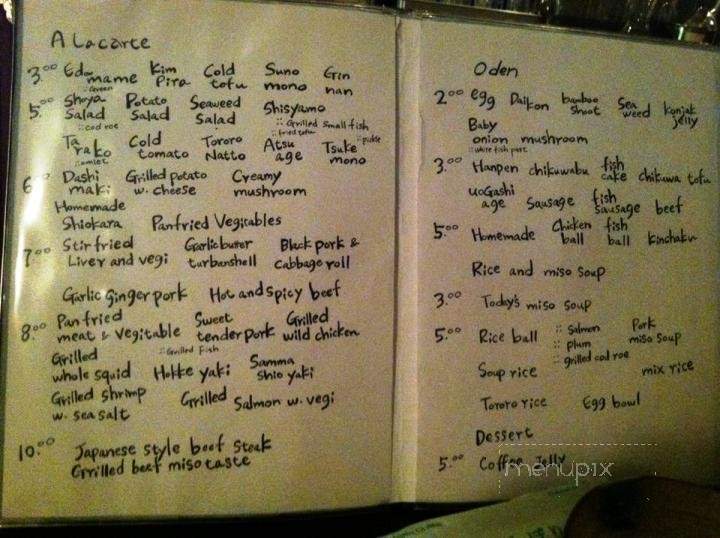 A Lacarte
3.00 Edamame Kim Pira Cold tofu Suno mono Gin nan
5.00 Shoya Salad Potato Salad Seaweed Salad Shisyamo
:: Green
:: Grilled small fish
:: cod roe
:: fried tofu
:: pickle
Tarako Cold tomato Tororo Natto Atsu age Tsuke mono
:: omlet
6.00 Dashi maki Grilled potato w. cheese Creamy mushroom
Homemade Shiokara Panfried Vegitables
7.00 Stir fried Liver and vegi Garlic buter turbanshell Black pork & cabbage roll
Garlic ginger pork Hot and spicy beef
8.00 Pan fried meat & Vegitable Sweet tender pork Grilled wild chicken
:: Grilled Fish
Grilled whole squid Hokke yaki Samma shio yaki
Grilled shrimp w. sea salt Grilled Salmon w. vegi
10.00 Japanese style beef steak
Grrilled beef miso taste
Oden
2.00 egg Daikon bamboo shoot Sea weed konjak jelly
Baby onion mushroom
:: white fish part
3.00 Hanpen chikuwabu fish cake chikuwa tofu
uoGashi age Sausage fish sausage beef
5.00 Homemade Chicken ball fish ball kinchaku
Rice and miso soup
3.00 Today's miso soup
5.00 Rice ball :: salmon :: plum :: grilled cod roe Pork miso soup
Soup rice mix rice
Tororo rice Egg bowl
Dessert
5.00 Coffee Jelly
menupix